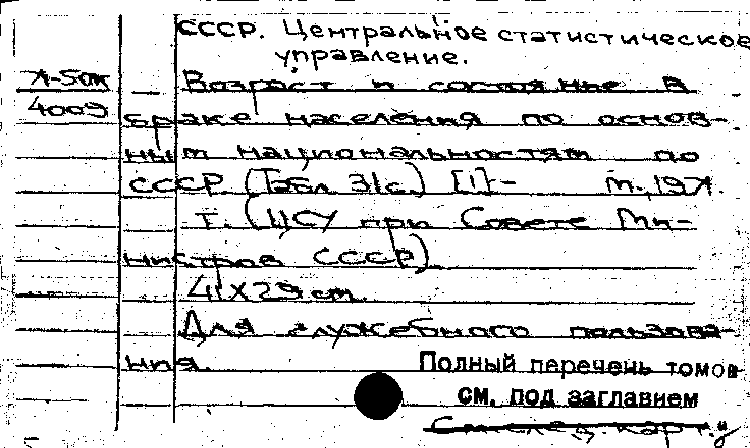 СССР. Центральное статистическое
управление.
Л-50к
Возраст и состояние в
4009
браке населения по основ-
ным национальностям по
СССР (Табл 31с.) [1]- М., 197.
т. (ЦСУ при Совете Ми-
нистров СССР)
41X29 cm.
Для служебного пользова-
ния.
Полный перечень томов
см. под заглавием
См. след. карт.